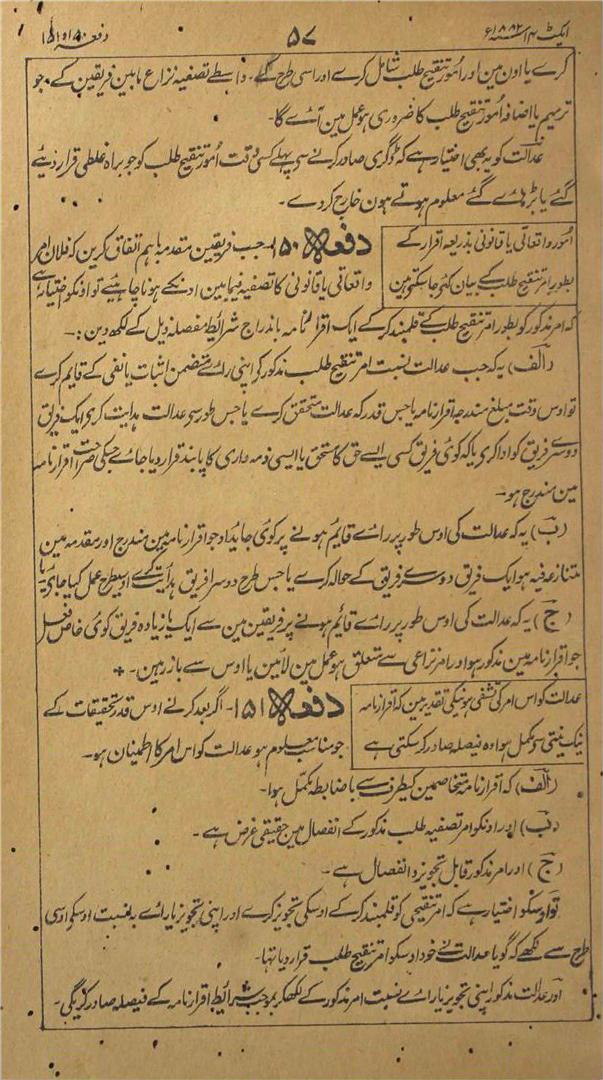 ایکٹ ۱۴ سنہ ۱۸۸۲ء
۵۷
دفعہ ۱۵۰ و ۱۵۱
کرے یا اون مین اور اُمور تنقیح طلب شامل کرے اور اسی طرح کے۔ واسطے تصفیہ نزاع مابین فریقین کے جو
ترمیم یا اضافہ اُمور تنقیح طلب کا ضروری ہو عمل مین آئے گا۔
عدالت کو یہ بھی اختیار ہے کہ ڈگری صادر کرنے سی پہلے کسی وقت اُمور تنقیح طلب کو جو براہ غلطی قرار دیئے
گئے یا بڑہائے گئے معلوم ہوتے ہون خارج کر دے۔
اُمور واقعاتی یا قانونی بذریعہ اقرار کے
بطور امر تنقیح طلب کے بیان کئے جا سکتے ہین
دفعہ ۱۵۰۔ جب فریقین مقدمہ باہم اتفاق کرین کہ فلان امر
واقعاتی یا قانونی کا تصفیہ فیمابین اونکے ہونا چاہیئے تو اونکو اختیار ہے
کہ امر مذکور کو بطور امر تنقیح طلب کے قلمبند کرکے ایک اقرار نامہ باندراج شرائط مفصلہ ذیل کے لکھ دین :۔
(الف) یہ کہ جب عدالت نسبت امر تنقیح طلب مذکور کے اپنی رائے متضمن اثبات یا نفی کے قایم کرے
تو اوس وقت مبلغ مندرجہ اقرارنامہ یا جس قدر کہ عدالت متحقق کرے یا جس طور سی عدالت ہدایت کری ایک فریق
دوسرے فریق کو ادا کری یا کہ کوئی فریق کسی ایسے حق کا مستحق یا ایسی ذمہ داری کا پابند قرار دیا جائے جسکی صراحت اقرارنامہ
مین مندرج ہو۔
(ب) یہ کہ عدالت کی اوس طور پر رائے قایم ہونے پر کوئی جایداد جو اقرارنامہ مین مندرج اور مقدمہ مین
متنازعہ فیہ ہو ایک فریق دوسرے فریق کے حوالہ کرے یا جس طرح دوسرا فریق ہدایت کرے اسیطرح عمل کیا جائے یا
(ج) یہ کہ عدالت کی اوس طور پر رائے قائم ہونے پر فریقین مین سے ایک یا زیادہ فریق کوئی خاص فعل
جو اقرارنامہ مین مذکور ہو اور امر نزاعی سے متعلق ہو عمل مین لائین یا اوس سے باز رہین۔
عدالت کو اس امر کی تشفی ہونیکی تقدیر مین کہ اقرارنامہ
نیک نیتی سی مکمل ہوا وہ فیصلہ صادر کر سکتی ہے
دفعہ ۱۵۱۔ اگر بعد کرنے اوس قدر تحقیقات کے
جو مناسب معلوم ہو عدالت کو اس امر کا اطمنان ہو۔
(الف) کہ اقرارنامہ متخاصمین کیطرف سے باضابطہ مکمل ہوا۔
(ب) اور اونکو امر تصفیہ طلب مذکور کے انفصال مین حقیقی غرض ہے۔
(ج) اور امر مذکور قابل تجویز و انفصال ہے۔
تو اوسکو اختیار ہے کہ امر تنقیحی کو قلمبند کرکے اوسکی تجویز کرے اور اپنی تجویز یا رائے بہ نسبت اوسکو اوسی
طرح سے لکھے کہ گویا عدالت نے خود اوسکو امر تنقیح طلب قرار دیا تہا۔
اور عدالت مذکور اپنی تجویز یا رائے نسبت امر مذکور کے لکھکر بموجب شرائط اقرارنامہ کے فیصلہ صادر کریگی۔